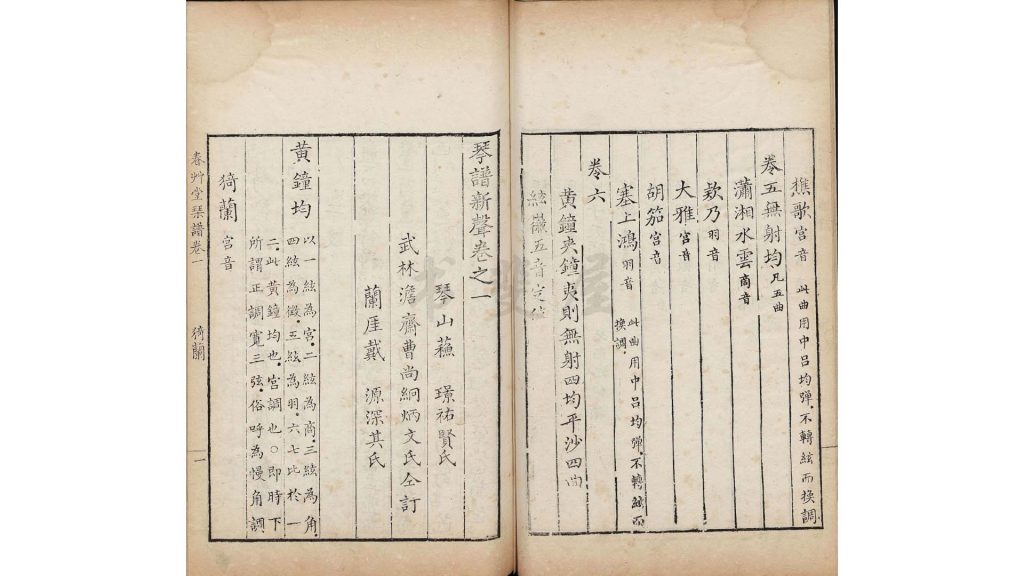 樵歌宮音 此曲用中呂均彈.不轉絃而換調
卷五無射均凡五曲
瀟湘水雲商音
欸乃羽音
大雅宮音
胡笳宮音
塞上鴻羽音 此曲用中呂均彈.不轉絃而
換調.
卷六
黃鐘夾鐘夷則無射四均平沙四曲
絃徽五音定位
琴譜新聲卷之一
琴山蘓 璟祐賢氏
武林澹齋曹尚絅炳文氏仝訂
蘭厓戴 源深其氏
黃鐘均
以一絃為宮.二絃為商.三絃為角.
四絃為徵.五絃為羽.六七比於一
二.此黃鐘均也.宮調也○即時下
所謂正調寬三弦.俗呼為慢角調
猗蘭宮音
春艸堂琴譜卷一 猗蘭 一